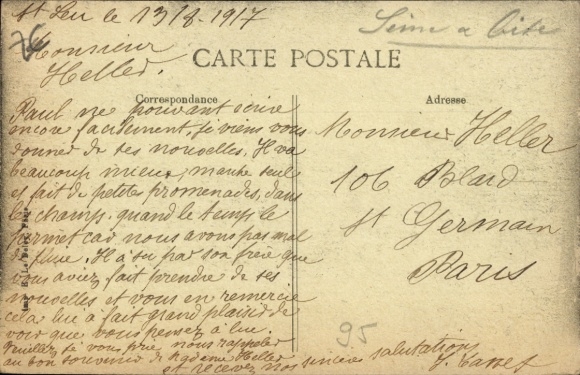 St Leu le 13/8-1917
Seine & Oise
Monsieur
Heller.
CARTE POSTALE
Correspondance
Adresse
Paul ne pouvant écrire
encore facilement, je viens vous
donner de ses nouvelles. Il va
beaucoup mieux, marche seul
et fait de petites promenades, dans
les champs. quand le temps le
permet car nous avons pas mal
de pluie. Il a su par son frère que
vous aviez fait prendre de ses
nouvelles et vous en remercie
cela lui a fait grand plaisir de
voir que vous pensez à lui.
Veuillez je vous prie nous rappeler
au bon souvenir de Madame Heller
et recevez nos sincères salutations
Monsieur Heller
106 Blard
St Germain
Paris
95